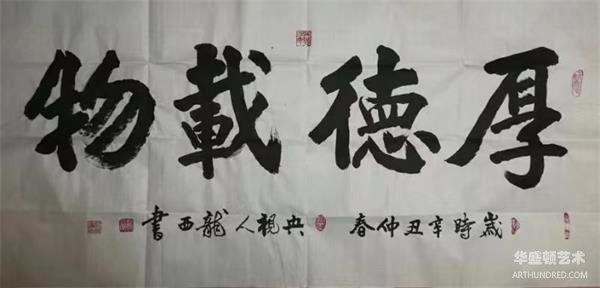 厚德載物
歲時辛丑仲春 央視人龍西書
华盛顿艺术
ARTHUNDRED.COM